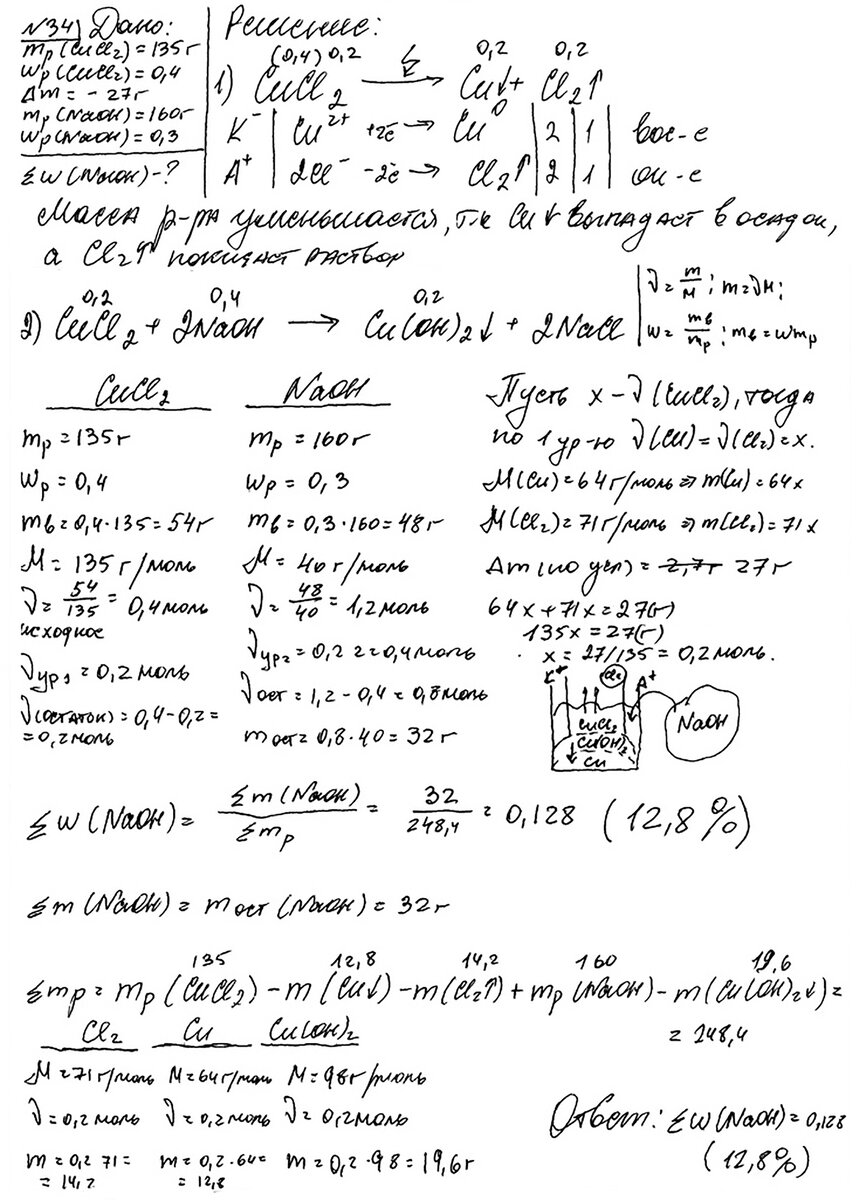 №34) Дано:
mр(CuCl2)=135г
wр(CuCl2)=0,4
Δm=-27г
mр(NaOH)=160г
wр(NaOH)=0,3
Σw(NaOH)-?
Решение:
(0,4) 0,2 0,2 0,2
1) CuCl2 ⟶ Cu↓ + Cl2↑
K⁻ | Cu²⁺ +2ē → Cu⁰ | 2 | 1 | вос-е
A⁺ | 2Cl⁻ -2ē → Cl2↑ | 2 | 1 | ок-е
Масса р-ра уменьшается, т.к Cu↓ выпадает в осадок,
а Cl2↑ покидает раствор
0,2 0,4 0,2
2) CuCl2 + 2NaOH → Cu(OH)2↓ + 2NaCl
ν = m/M; m=νM;
w= mв/mр; mв=wmр
CuCl2
mр=135г
wр=0,4
mв=0,4·135=54г
M=135г/моль
ν=54/135=0,4моль
исходное
νур1=0,2моль
ν(остаток)=0,4-0,2=
=0,2моль
NaOH
mр=160г
wр=0,3
mв=0,3·160=48г
M=40г/моль
ν=48/40=1,2моль
νур2=0,2·2=0,4моль
νост=1,2-0,4=0,8моль
mост=0,8·40=32г
Пусть x-ν(CuCl2), тогда
по 1ур-ю ν(Cu)=ν(Cl2)=x.
M(Cu)=64г/моль⇒m(Cu)=64x
M(Cl2)=71г/моль⇒m(Cl2)=71x
Δm(по усл)=2,7г 27г
64x+71x=27(г)
135x=27(г)
x=27/135=0,2моль.
K⁺ Cl2 A⁺
CuCl2
Cu(OH)2
Cu
NaOH
Σw(NaOH)= Σm(NaOH)/Σmр = 32/248,4 = 0,128 (12,8%)
Σm(NaOH)=mост(NaOH)=32г
135 12,8 14,2 160 19,6
Σmр=mр(CuCl2)-m(Cu↓)-m(Cl2↑)+mр(NaOH)-m(Cu(OH)2↓)=
=248,4
Cl2 Cu Cu(OH)2
M=71г/моль M=64г/моль M=98г/моль
ν=0,2моль ν=0,2моль ν=0,2моль
m=0,2·71= m=0,2·64= m=0,2·98=19,6г
=14,2 =12,8
Ответ: Σw(NaOH)=0,128
(12,8%)